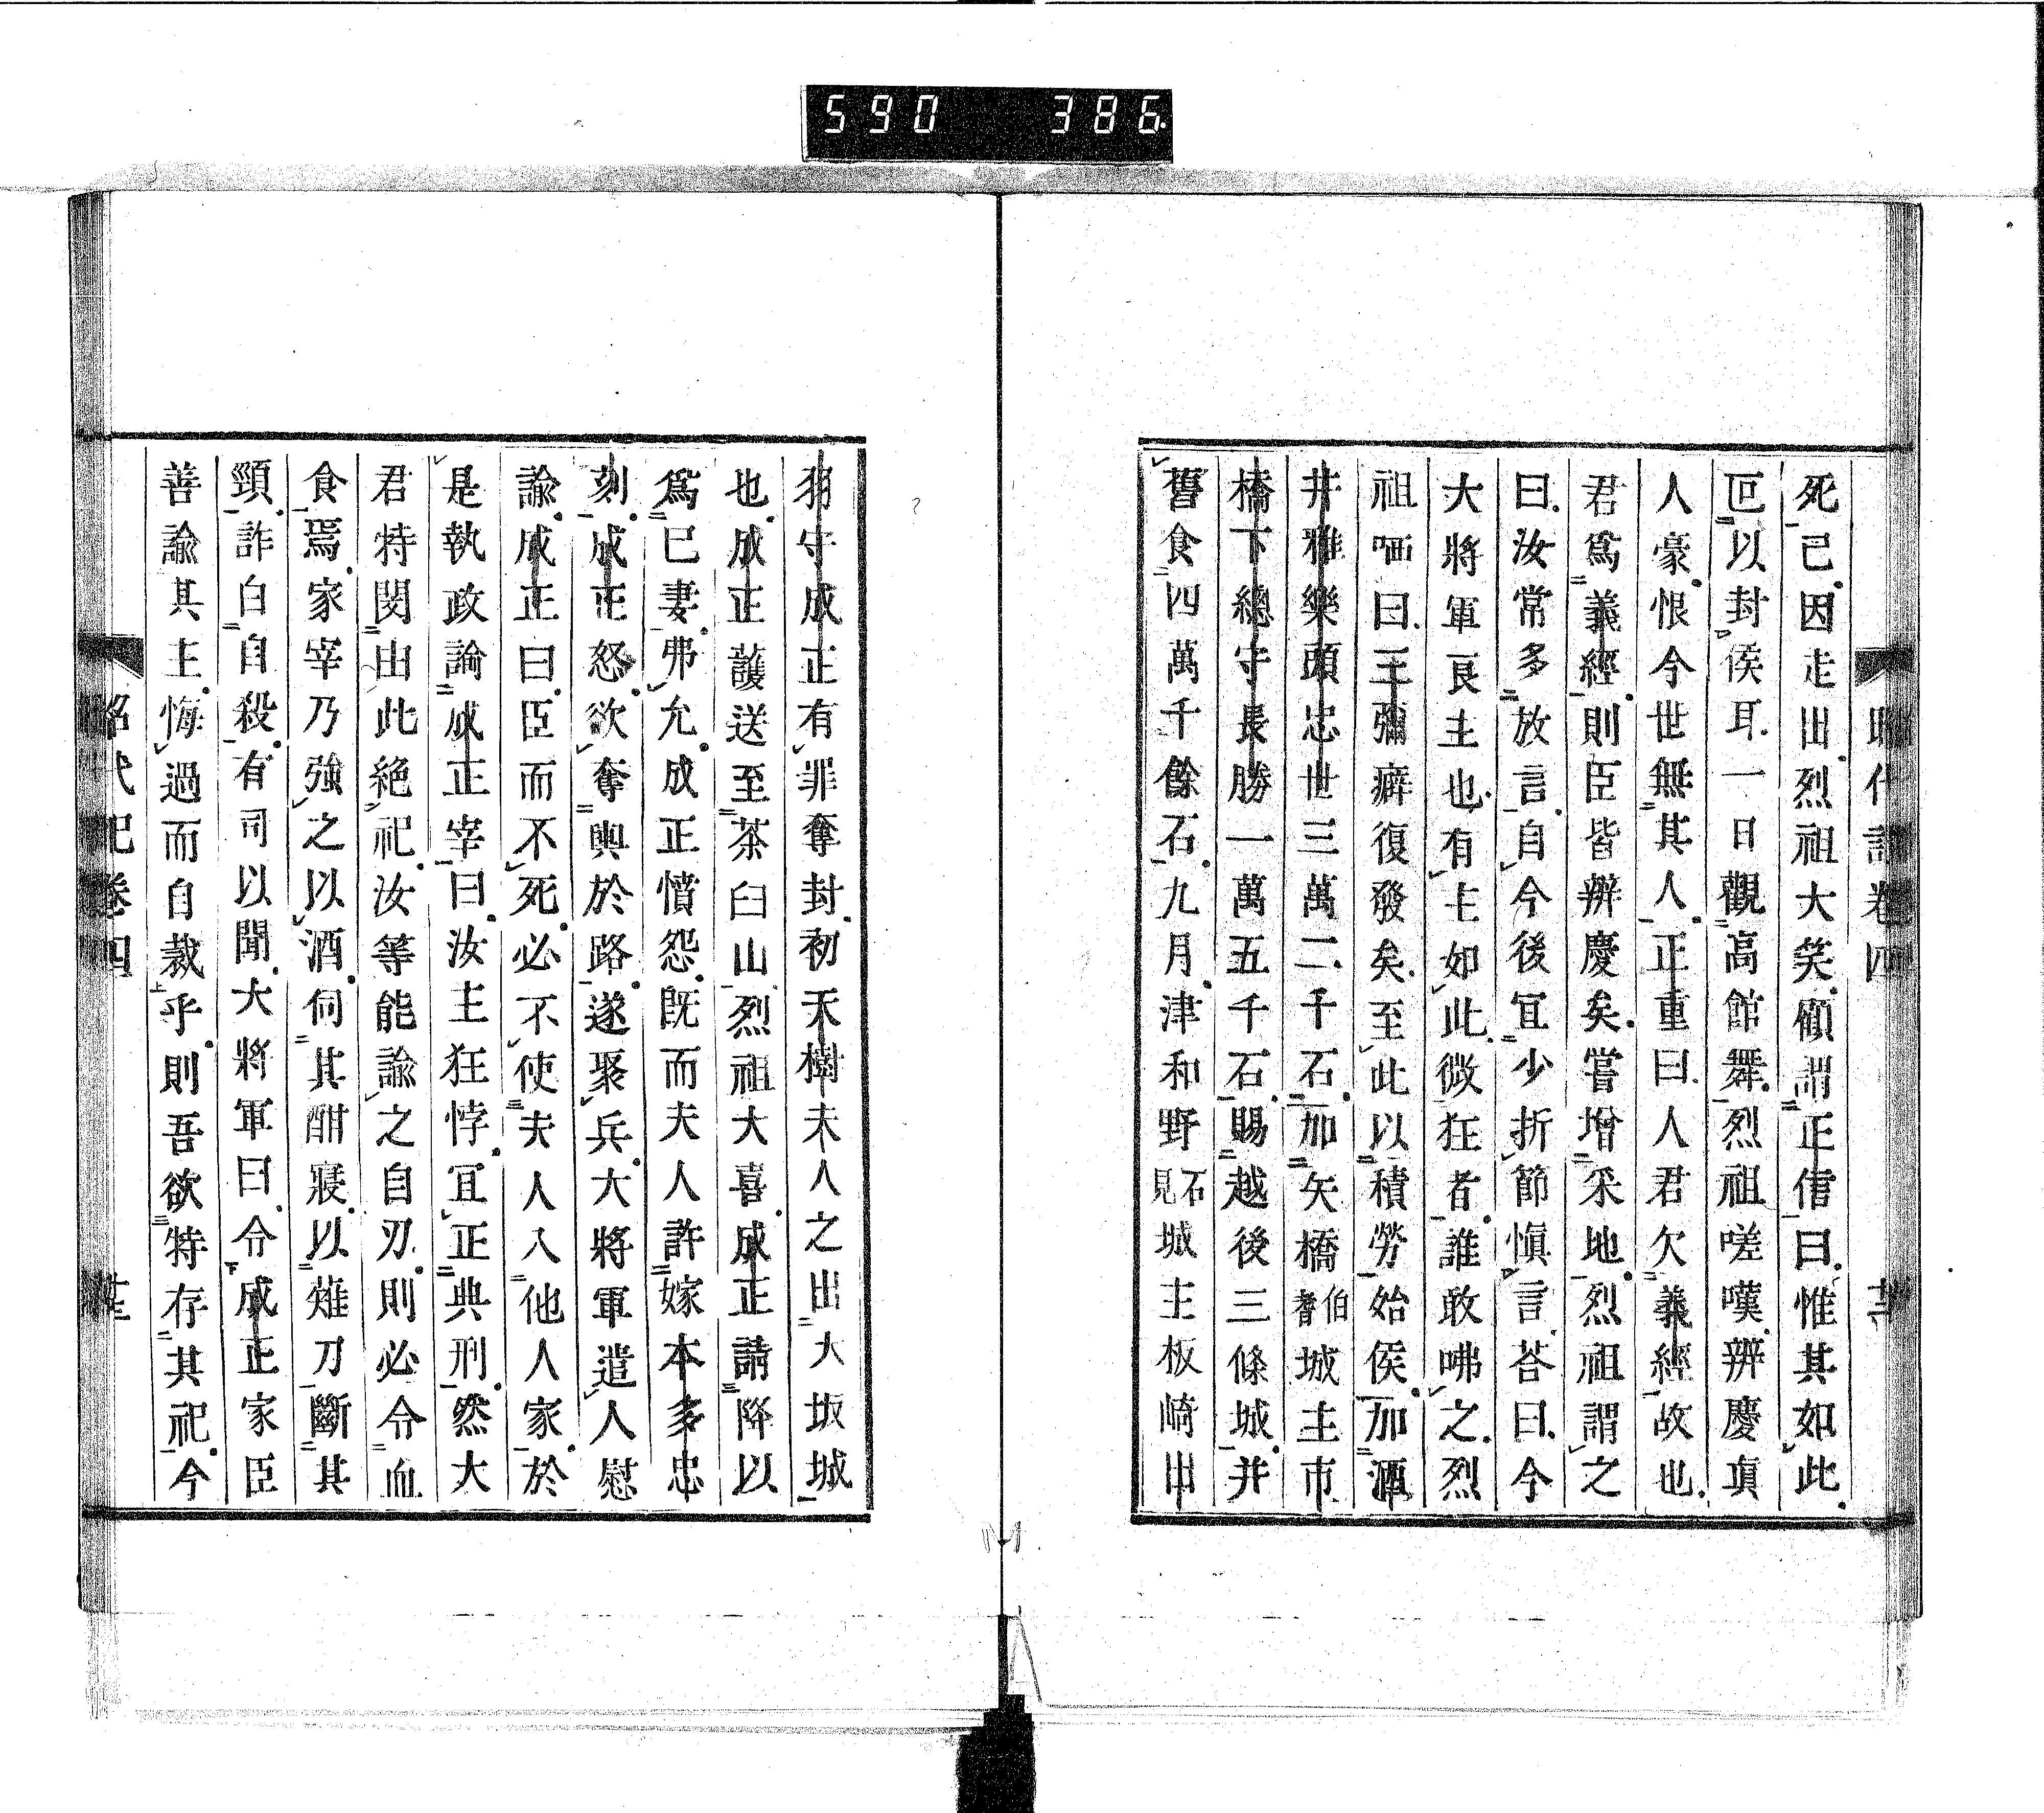 590 386
昭代記卷四
死已因走出烈祖大笑顧謂正信曰惟其如此
叵以封侯耳一日觀高館舞烈祖嗟嘆辨慶眞
人豪恨今世無其人正重曰人君欠義經故也
君爲義經則臣皆辨慶矣嘗增采地烈祖謂之
曰汝常多放言自今後宜少折節愼言荅曰今
大將軍良主也有主如此微狂者誰敢咈之烈
祖哂曰三彌癖復發矣至此以積勞始侯加酒
井雅樂頭忠世三萬二千石加矢橋伯耆城主市
橋下總守長勝一萬五千石賜越後三條城并
舊食四萬千餘石九月津和野石見城主板崎出
羽守成正有罪奪封初天樹夫人之出大坂城
也成正護送至茶臼山烈祖大喜成正請降以
爲已妻弗允成正憤怨既而夫人許嫁本多忠
刻成正怒欲奪輿於路遂聚兵大將軍遣人慰
諭成正曰臣而不死必不使夫人入他人家於
是執政諭成正宰曰汝主狂悖宜正典刑然大
君特閔由此絕祀汝等能諭之自刃則必令血
食焉家宰乃強之以酒伺其酣寢以薙刀斷其
頸詐白自殺有司以聞大將軍曰令成正家臣
善諭其主悔過而自裁乎則吾欲特存其祀今
昭代記卷四